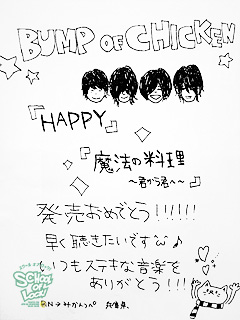 BUMP OF CHICKEN
『HAPPY』
『魔法の料理
〜君から君へ〜』
発売おめでとう!!!!!!
早く聴きたいですな♪
いつもステキな音楽を
ありがとう!!!
SCHOOL OF LOCK!